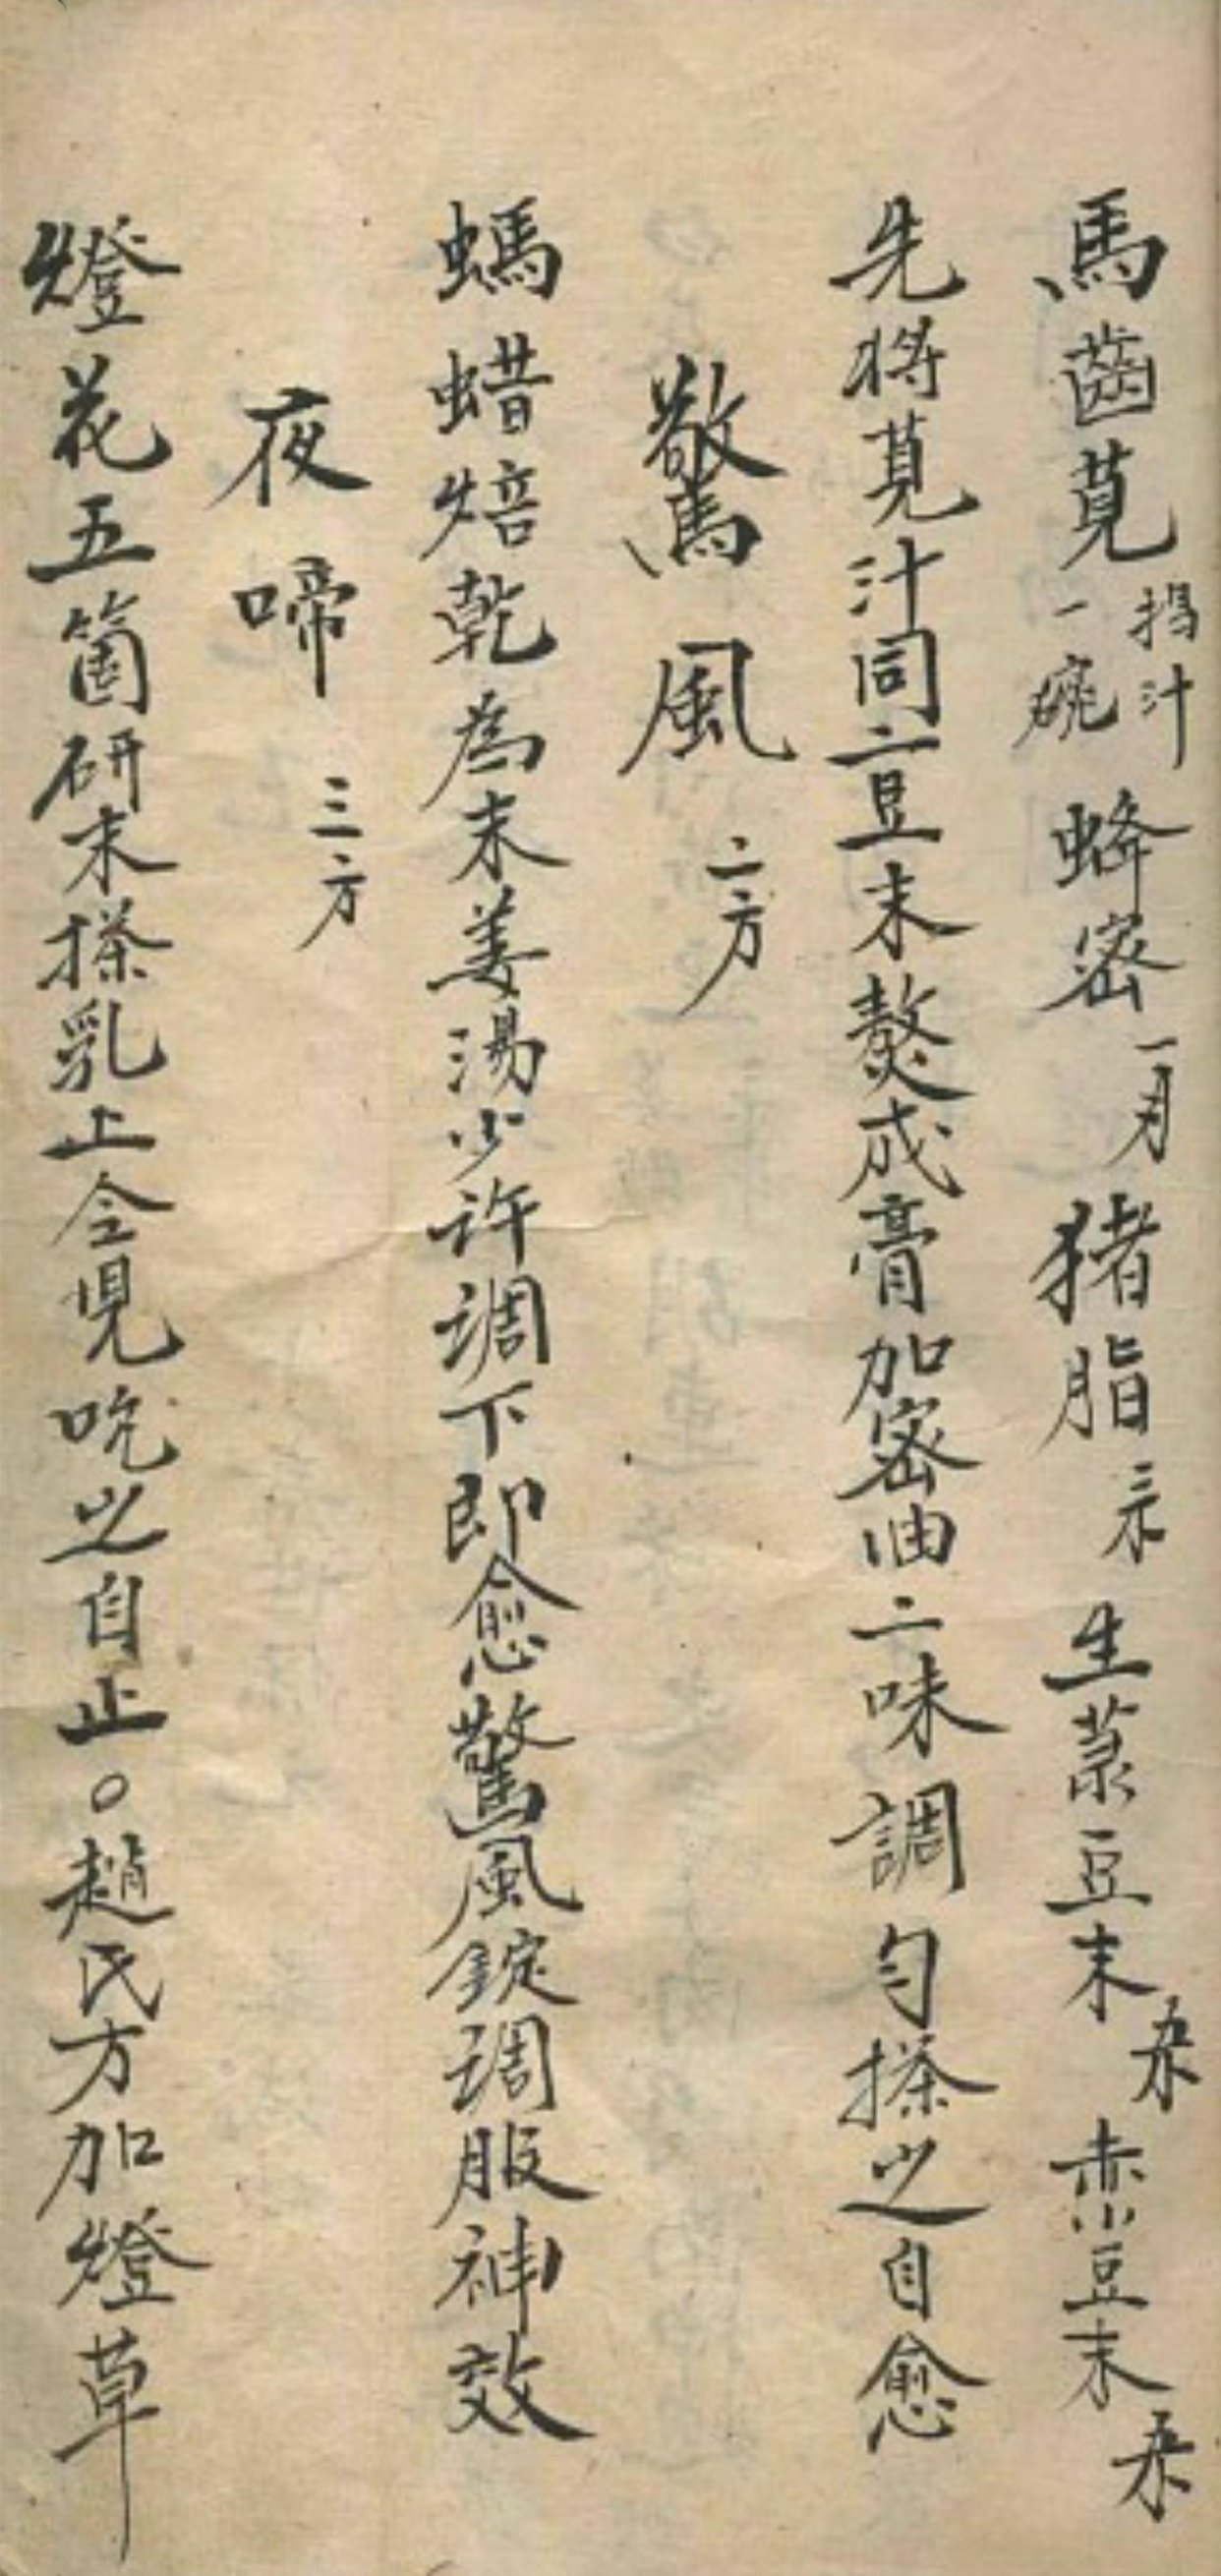 馬齒莧搗汁一碗蜂蜜一月猪脂三示生菉豆末赤豆末
先將莧汁同二豆末熬成膏加蜜油二味調勻搽之自愈
驚風二方
螞蜡焙乾為末姜湯少許調下即愈驚風錠調服神效
夜啼三方
燈花五箇研末搽乳上令兒吃之自止。趙氏方加燈草